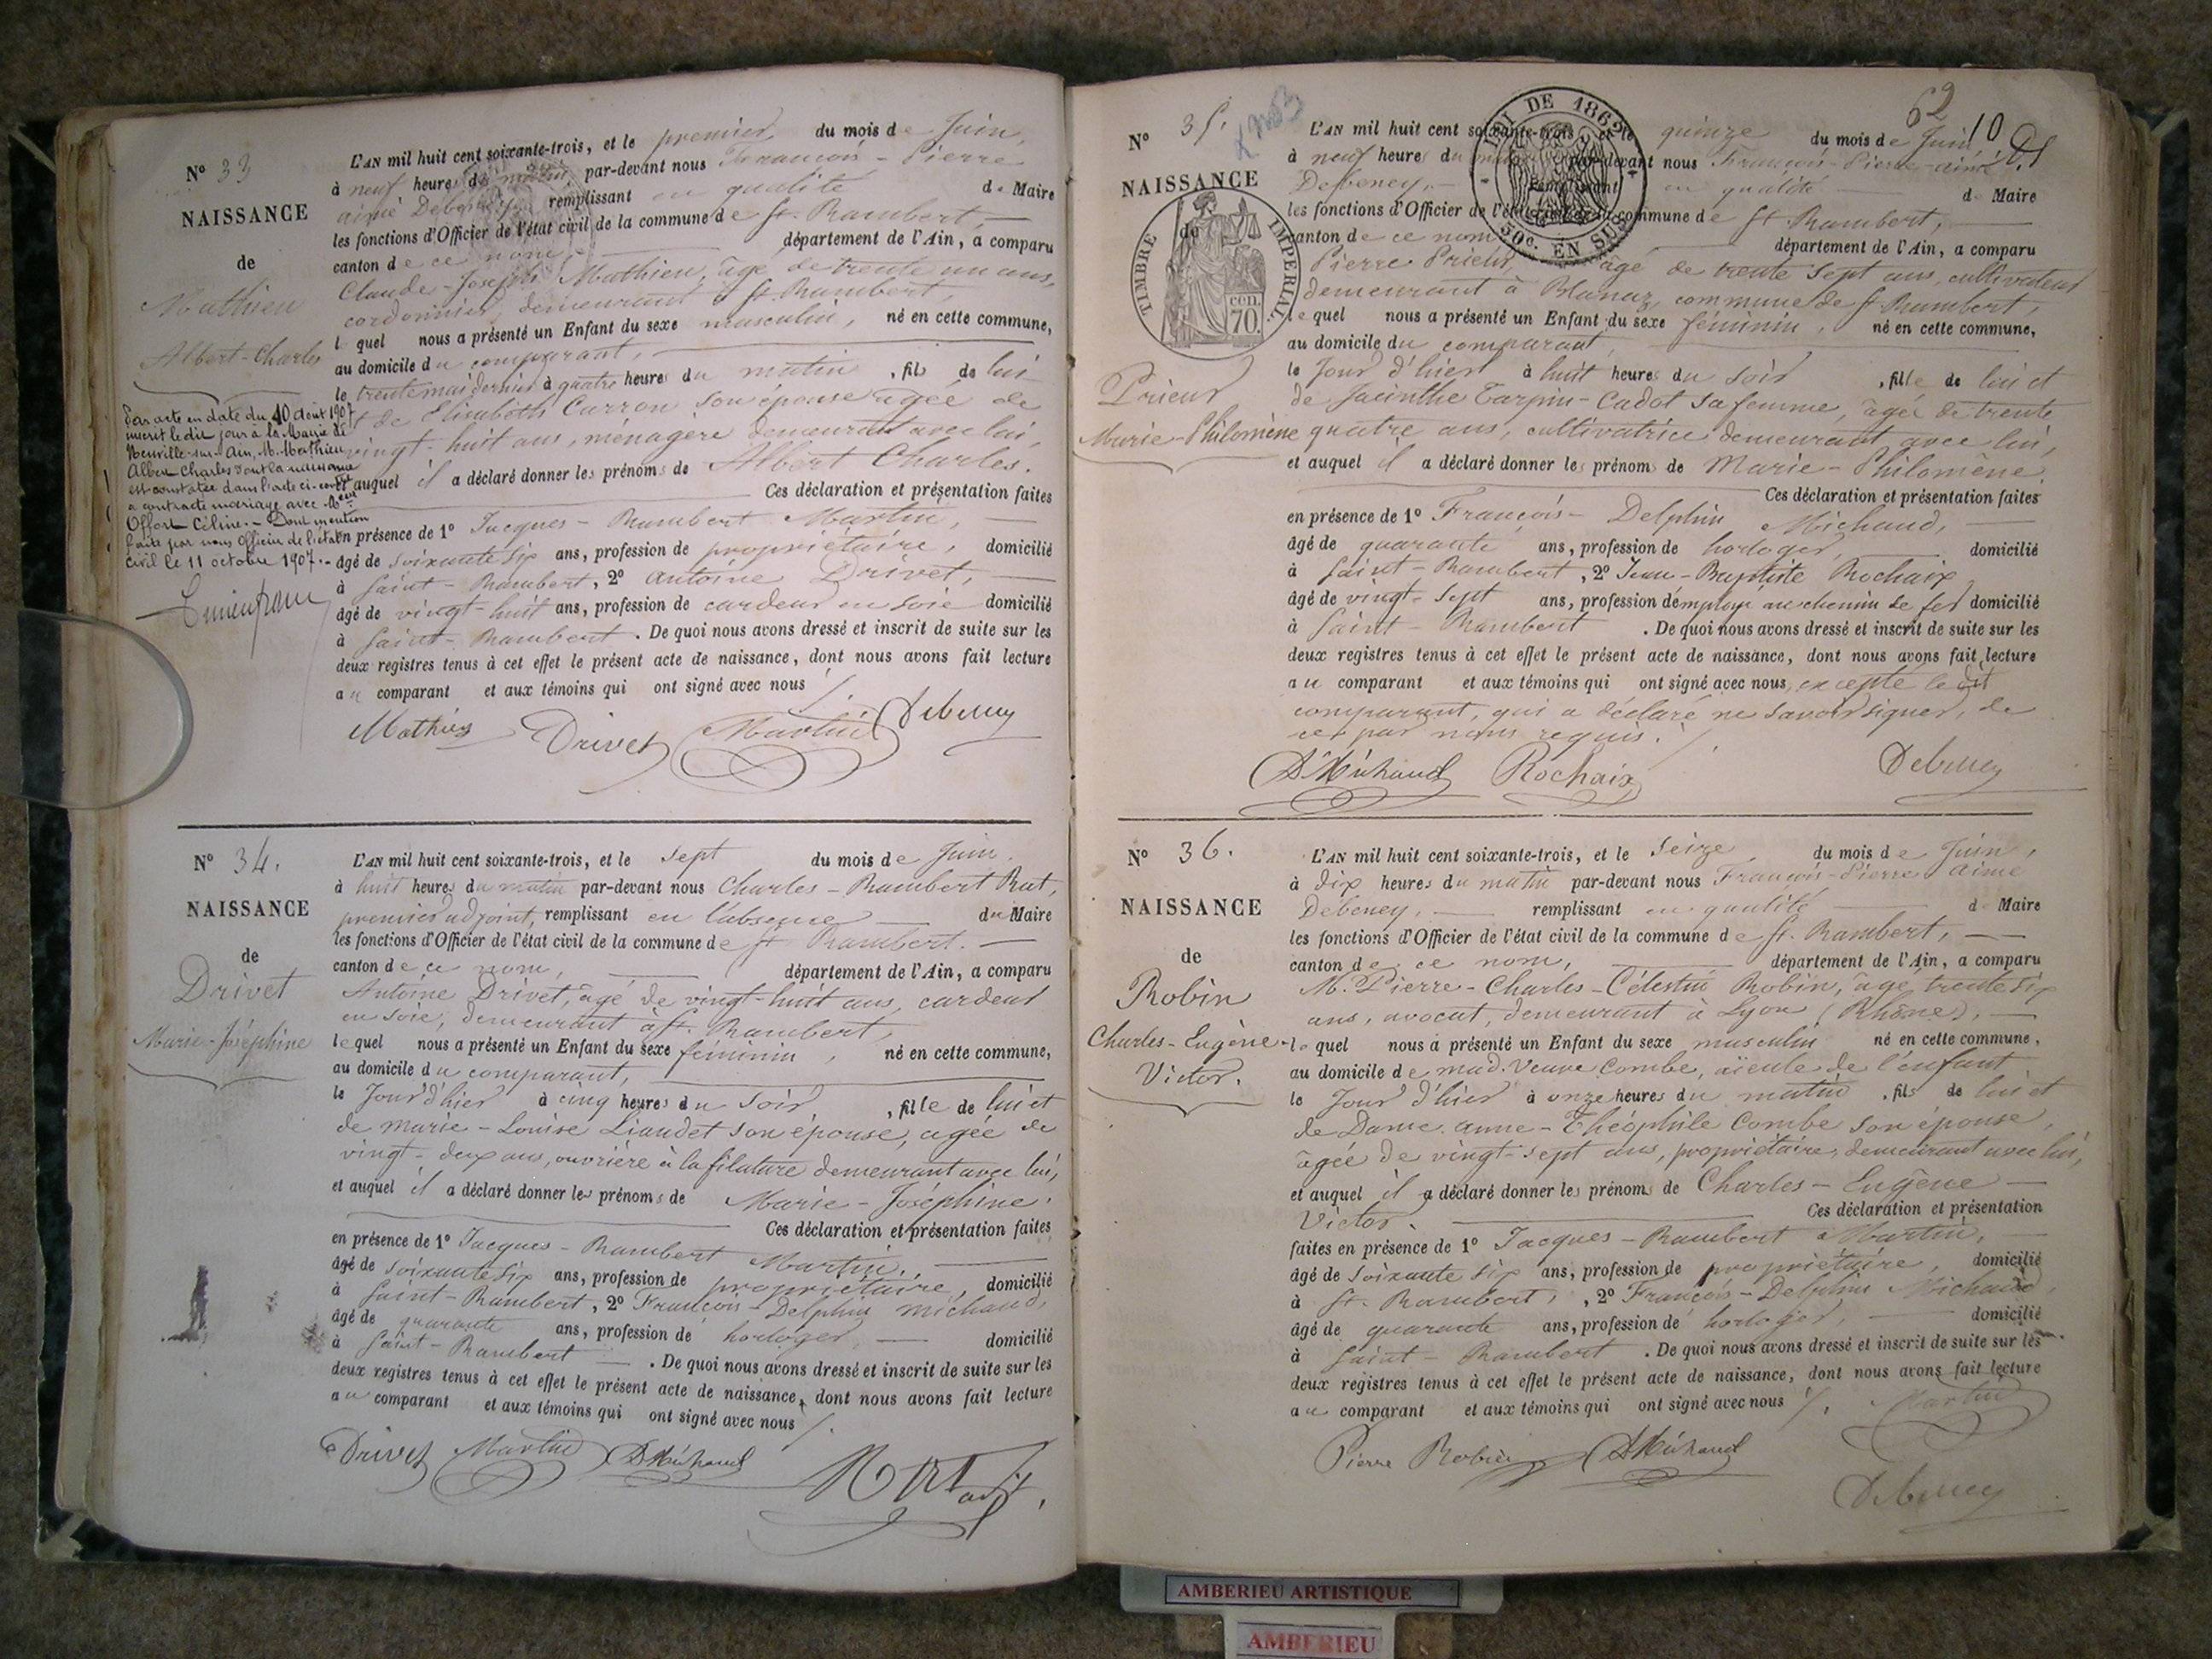 N° 33
NAISSANCE
de
Mathieu
Albert-Charles
L'AN mil huit cent soixante-trois, et le premier du mois de Juin,
à neuf heures du matin, par-devant nous François-Pierre
aimé Debeney, remplissant en qualité de Maire
les fonctions d'Officier de l'état civil de la commune de St. Rambert,
canton de ce nom, département de l'Ain, a comparu
Claude-Joseph Mathieu, âgé de trente un ans,
cordonnier, demeurant à St. Rambert,
lequel nous a présenté un Enfant du sexe masculin, né en cette commune,
au domicile du comparant,
le trente mai dernier à quatre heures du matin, fils de lui
et de Elisabeth Curron son épouse agée de
vingt-huit ans, ménagère demeurant avec lui,
et auquel il a déclaré donner les prénoms de Albert Charles.
Ces déclaration et présentation faites
en présence de 1° Jacques-Rambert Martin,
âgé de soixante six ans, profession de propriétaire, domicilié
à Saint-Rambert, 2° Antoine Drivet,
âgé de vingt-huit ans, profession de cardeur en soie domicilié
à Saint-Rambert. De quoi nous avons dressé et inscrit de suite sur les
deux registres tenus à cet effet le présent acte de naissance, dont nous avons fait lecture
au comparant et aux témoins qui ont signé avec nous
Mathieu Drivet Martin Debeney
Par acte en date du 10 août 1907
inscrit le dit jour à la Mairie de
Neuville-sur-Ain, M. Mathieu
Albert Charles dont la naissance
est constatée dans l'acte ci-contre
a contracté mariage avec Melle
Offort Céline.- Dont mention
faite par nous Officier de l'état
civil le 11 octobre 1907.-
N° 34.
NAISSANCE
de
Drivet
Marie-Joséphine
L'AN mil huit cent soixante-trois, et le sept du mois de Juin,
à huit heures du matin par-devant nous Charles-Rambert Rut,
premier adjoint, remplissant en l'absence du Maire
les fonctions d'Officier de l'état civil de la commune de St. Rambert.
canton de ce nom, département de l'Ain, a comparu
Antoine Drivet, âgé de vingt-huit ans, cardeur
en soie, demeurant à St. Rambert,
lequel nous a présenté un Enfant du sexe féminin, né en cette commune,
au domicile du comparant,
le Jour d'hier à cinq heures du soir, fille de lui et
de Marie-Louise Liaudet son épouse, agée de
vingt-deux ans, ouvrière à la filature demeurant avec lui,
et auquel il a déclaré donner les prénoms de Marie-Joséphine.
Ces déclaration et présentation faites
en présence de 1° Jacques-Rambert Martin,
âgé de soixante six ans, profession de propriétaire, domicilié
à Saint-Rambert, 2° François-Delphin Michaud,
âgé de quarante ans, profession de horloger, domicilié
à Saint-Rambert. De quoi nous avons dressé et inscrit de suite sur les
deux registres tenus à cet effet le présent acte de naissance, dont nous avons fait lecture
au comparant et aux témoins qui ont signé avec nous
Drivet Martin DMichaud
62
10
N° 35.
NAISSANCE
de
TIMBRE IMPERIAL
cen. 70.
LOI DE 1862
50c. EN SUS
Prieur
Marie-Philomène
L'AN mil huit cent soixante-trois et le quinze du mois de Juin
à neuf heures du matin par-devant nous François-Pierre-aimé
Debeney, remplissant en qualité de Maire
les fonctions d'Officier de l'état civil de la commune de St. Rambert,
canton de ce nom département de l'Ain, a comparu
Pierre Prieur, âgé de trente sept ans, cultivateur
demeurant à Blanaz, commune de St Rambert,
lequel nous a présenté un Enfant du sexe féminin, né en cette commune,
au domicile du comparant,
le Jour d'hier à huit heures du soir, fille de lui et
de Jacinthe Tarpin-Cadot sa femme, âgée de trente
quatre ans, cultivatrice demeurant avec lui,
et auquel il a déclaré donner les prénoms de Marie-Philomène.
Ces déclaration et présentation faites
en présence de 1° François-Delphin Michaud,
âgé de quarante ans, profession de horloger, domicilié
à Saint-Rambert, 2° Jean-Baptiste Rochaix
âgé de vingt-sept ans, profession d'employé au chemin de fer domicilié
à Saint-Rambert. De quoi nous avons dressé et inscrit de suite sur les
deux registres tenus à cet effet le présent acte de naissance, dont nous avons fait lecture
au comparant et aux témoins qui ont signé avec nous, excepté le dit
comparant, qui a déclaré ne savoir signer, de
ce par nous requis.
DMichaud Rochaix Debeney
N° 36.
NAISSANCE
de
Robin
Charles-Eugène-
Victor.
L'AN mil huit cent soixante-trois, et le seize du mois de Juin,
à dix heures du matin par-devant nous François-Pierre aimé
Debeney, remplissant en qualité de Maire
les fonctions d'Officier de l'état civil de la commune de St. Rambert,
canton de ce nom, département de l'Ain, a comparu
M. Pierre-Charles-Célestin Robin, âgé trente six
ans, avocat, demeurant à Lyon (Rhône),
lequel nous a présenté un Enfant du sexe masculin né en cette commune,
au domicile de mad. Veuve Combe, aïeule de l'enfant
le Jour d'hier à onze heures du matin, fils de lui et
de Dame Anne-Théophile Combe son épouse,
âgée de vingt-sept ans, propriétaire, demeurant avec lui,
et auquel il a déclaré donner les prénoms de Charles-Eugène-
Victor. Ces déclaration et présentation
faites en présence de 1° Jacques-Rambert Martin,
âgé de soixante six ans, profession de propriétaire, domicilié
à St. Rambert, 2° François-Delphin Michaud,
âgé de quarante ans, profession de horloger, domicilié
à Saint-Rambert. De quoi nous avons dressé et inscrit de suite sur les
deux registres tenus à cet effet le présent acte de naissance, dont nous avons fait lecture
au comparant et aux témoins qui ont signé avec nous
Martin
Pierre Robin DMichaud
Debeney
AMBERIEU ARTISTIQUE
AMBERIEU